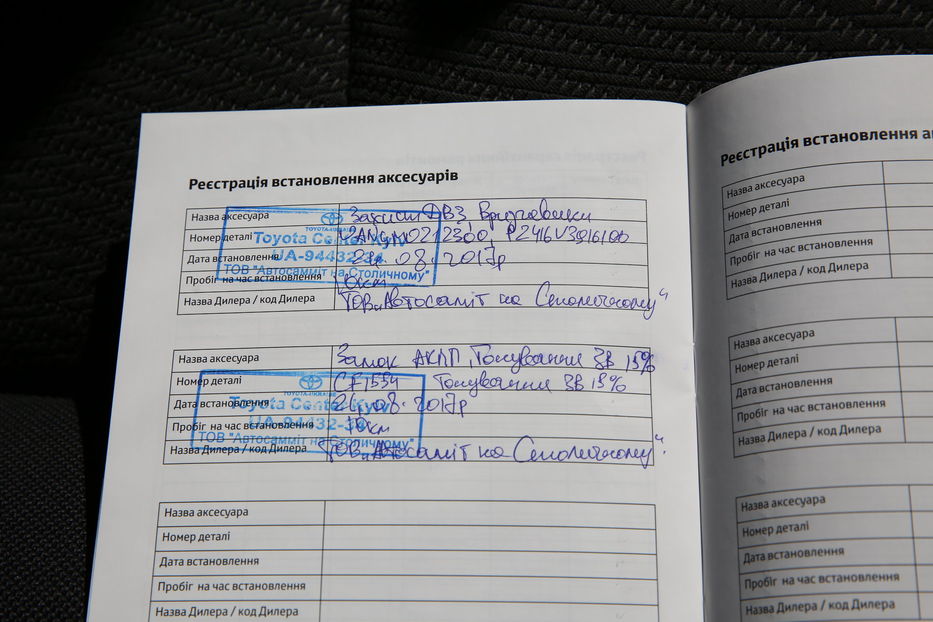 Реєстрація встановлення аксесуарів
Назва аксесуара Захист ДВЗ Бризговики
Номер деталі
Дата встановлення 21.08.2017р
Пробіг на час встановлення 10км
Назва Дилера / код Дилера ТОВ "Автосаміт на Столичному"
TOYOTA
Toyota Center Kyiv
UA-94432-34
ТОВ "Автосамміт на Столичному"
Назва аксесуара Замок АКПП Тонування ЗВ 15%
Номер деталі CF1554 Тонування ЗВ 15%
Дата встановлення 21.08.2017р
Пробіг на час встановлення 10км
Назва Дилера / код Дилера ТОВ "Автосаміт на Столичному"
Toyota Center Kyiv
UA-94432-34
ТОВ "Автосамміт на Столичному"
Назва аксесуара
Номер деталі
Дата встановлення
Пробіг на час встановлення
Назва Дилера / код Дилера
Реєстрація встановлення
Назва аксесуара
Номер деталі
Дата встановлення
Пробіг на час встановлення
Назва Дилера / код Дилера
Назва аксесуара
Номер деталі
Дата встановлення
Пробіг на час встановлення
Назва Дилера / код Дилера
Назва аксесуара
Номер деталі
Дата встановлення
Пробіг на час встановлення
Назва Дилера / код Дилера